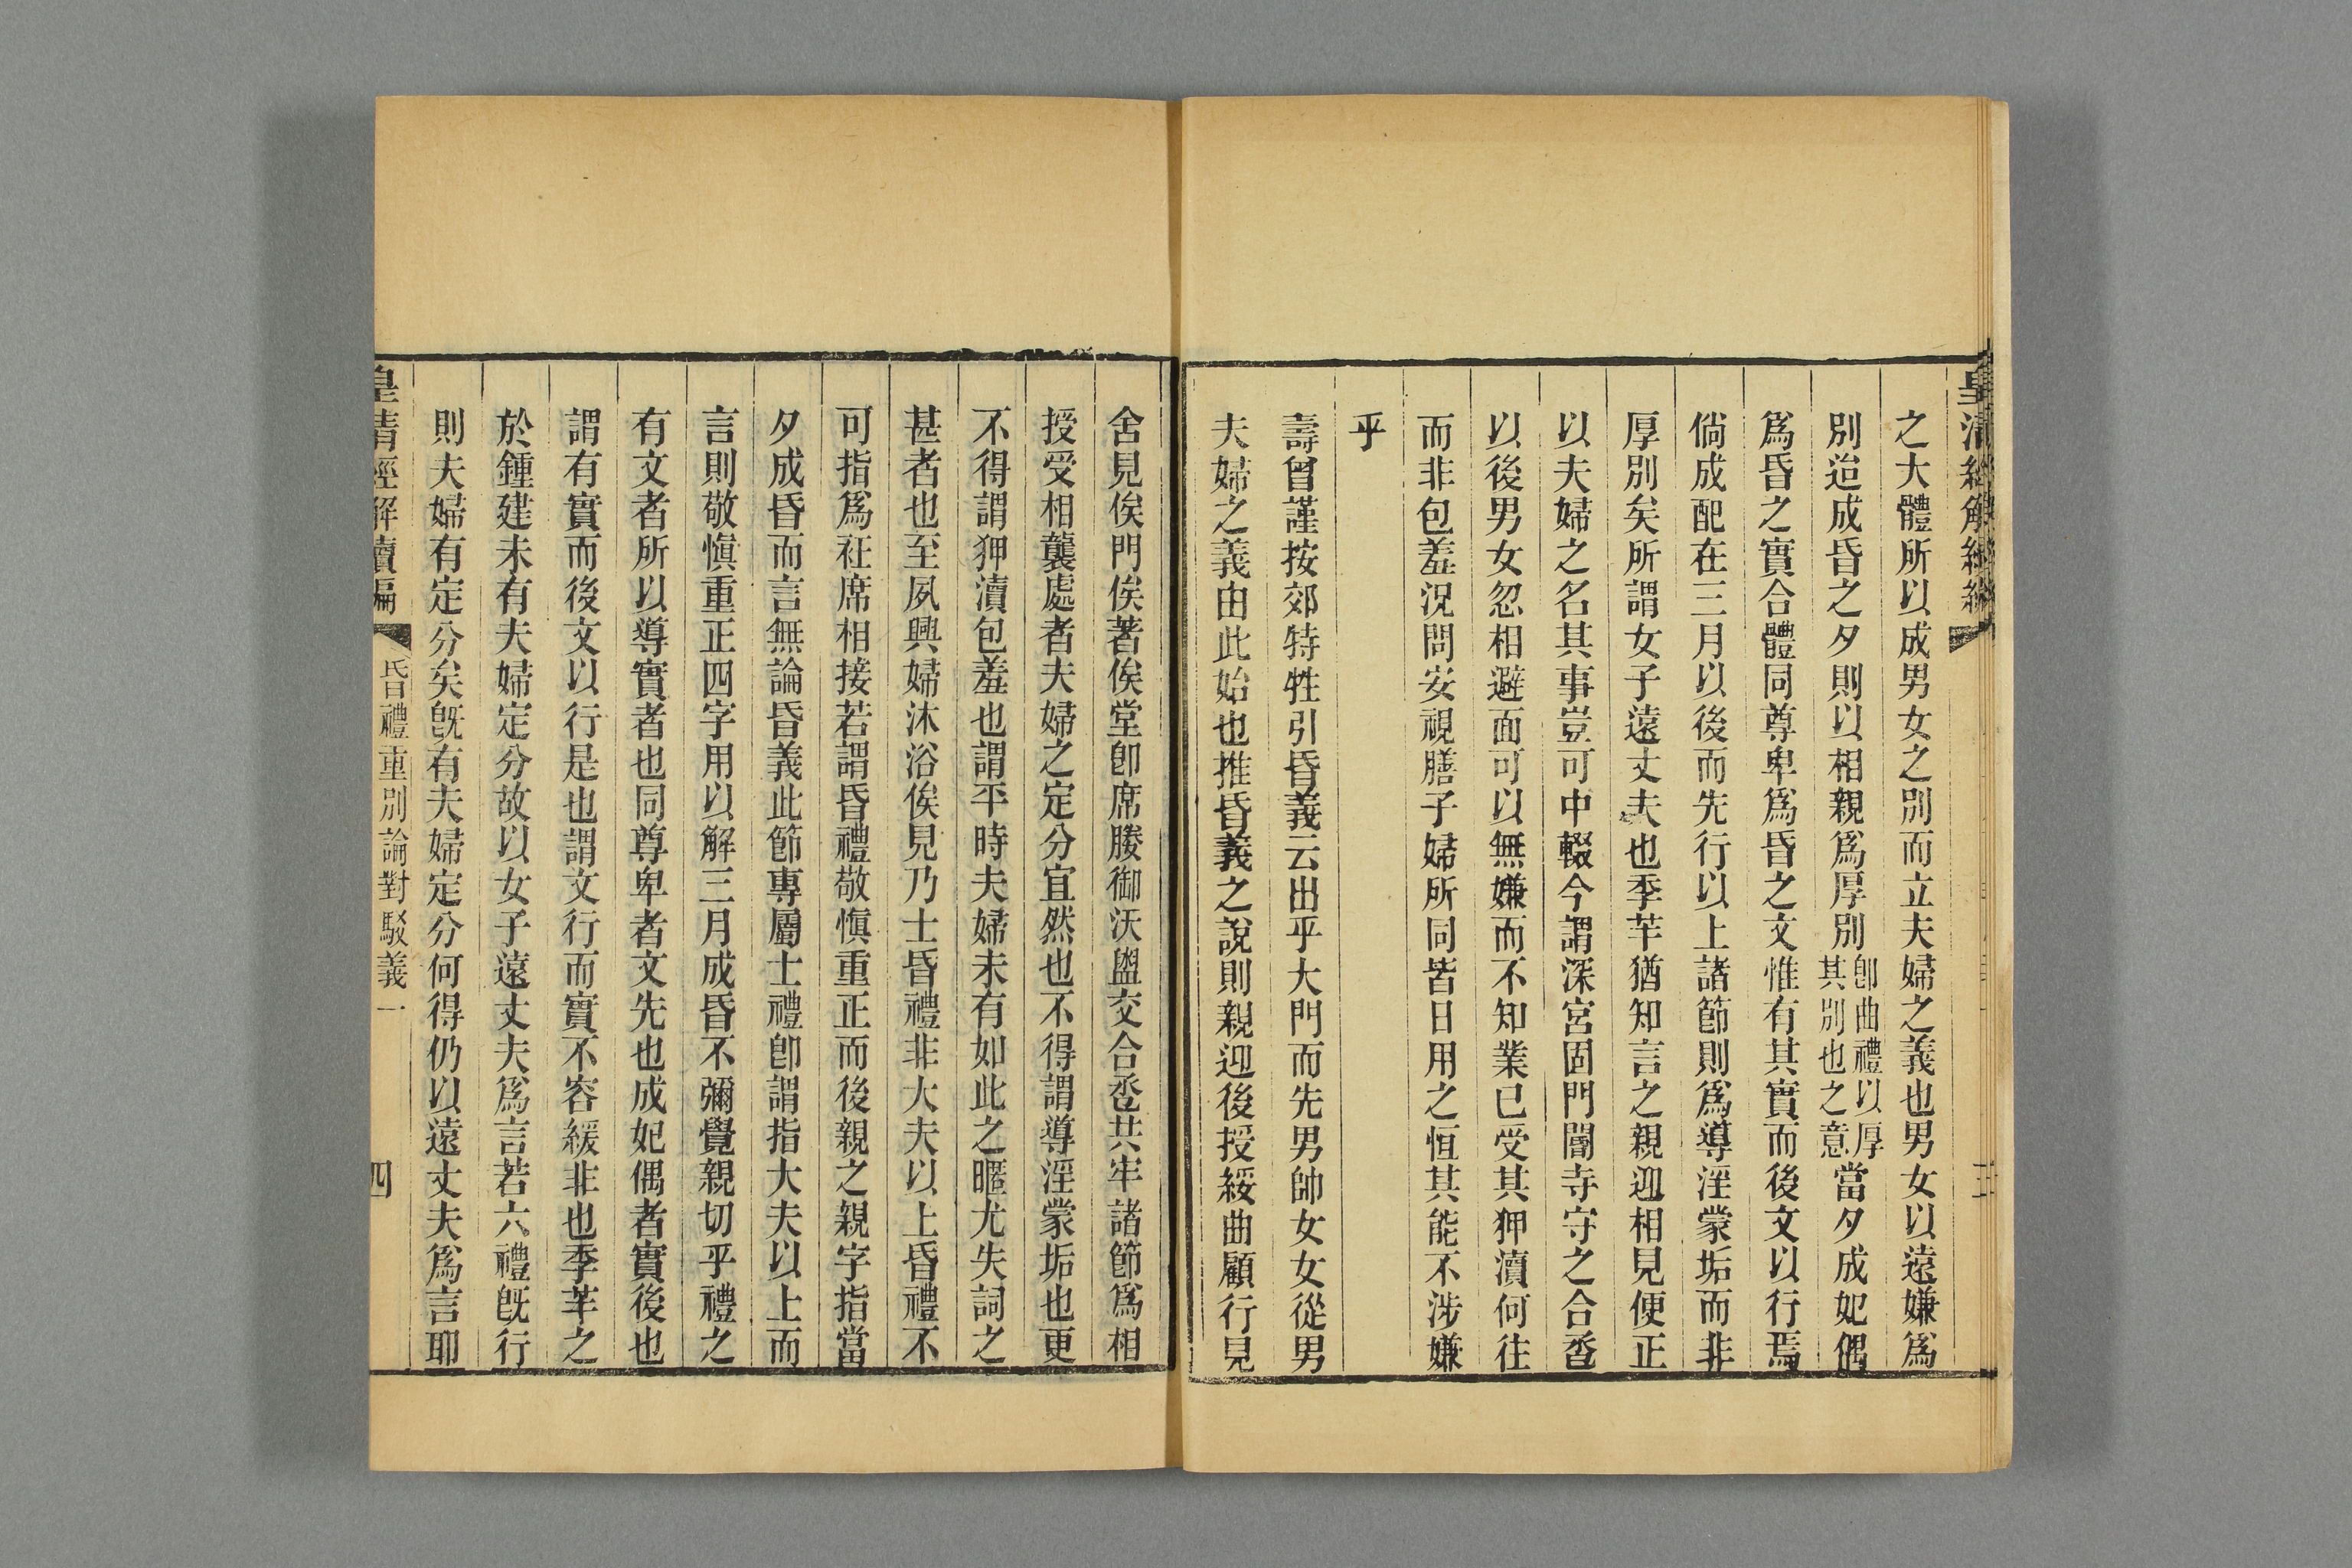 之大體所以成男女之別而立夫婦之義也男女以遠嫌爲
別迨成昏之夕則以相親爲厚別卽曲禮以厚其別也之意當夕成妃偶
爲昏之實合體同尊卑爲昏之文惟有其實而後文以行焉
倘成配在三月以後而先行以上諸節則爲導淫蒙垢而非
厚別矣所謂女子遠丈夫也季芊猶知言之親迎相見便正
以夫婦之名其事豈可中輟今謂深宮固門閽寺守之合巹
以後男女忽相避面可以無嫌而不知業已受其狎瀆何往
而非包羞況問安視膳子婦所同皆日用之恒其能不涉嫌
乎
壽曾謹按郊特牲引昏義云出乎大門而先男帥女女從男
夫婦之義由此始也推昏義之說則親迎後授綏曲顧行見
舍見俟門俟著俟堂卽席媵御沃盥交合巹共牢諸節爲相
授受相襲處者夫婦之定分宜然也不得謂導淫蒙垢也更
不得謂狎瀆包羞也謂平時夫婦未有如此之暱尤失詞之
甚者也至夙興婦沐浴俟見乃士昏禮非大夫以上昏禮不
可指爲衽席相接若謂昏禮敬愼重正而後親之親字指當
夕成昏而言無論昏義此節專屬士禮卽謂指大夫以上而
言則敬愼重正四字用以解三月成昏不彌覺親切乎禮之
有文者所以導實者也同尊卑者文先也成妃偶者實後也
謂有實而後文以行是也謂文行而實不容緩非也季芊之
於鍾建未有夫婦定分故以女子遠丈夫爲言若六禮旣行
則夫婦有定分矣旣有夫婦定分何得仍以遠丈夫爲言耶
皇清經解續編
昏禮重別論對駁義一
四